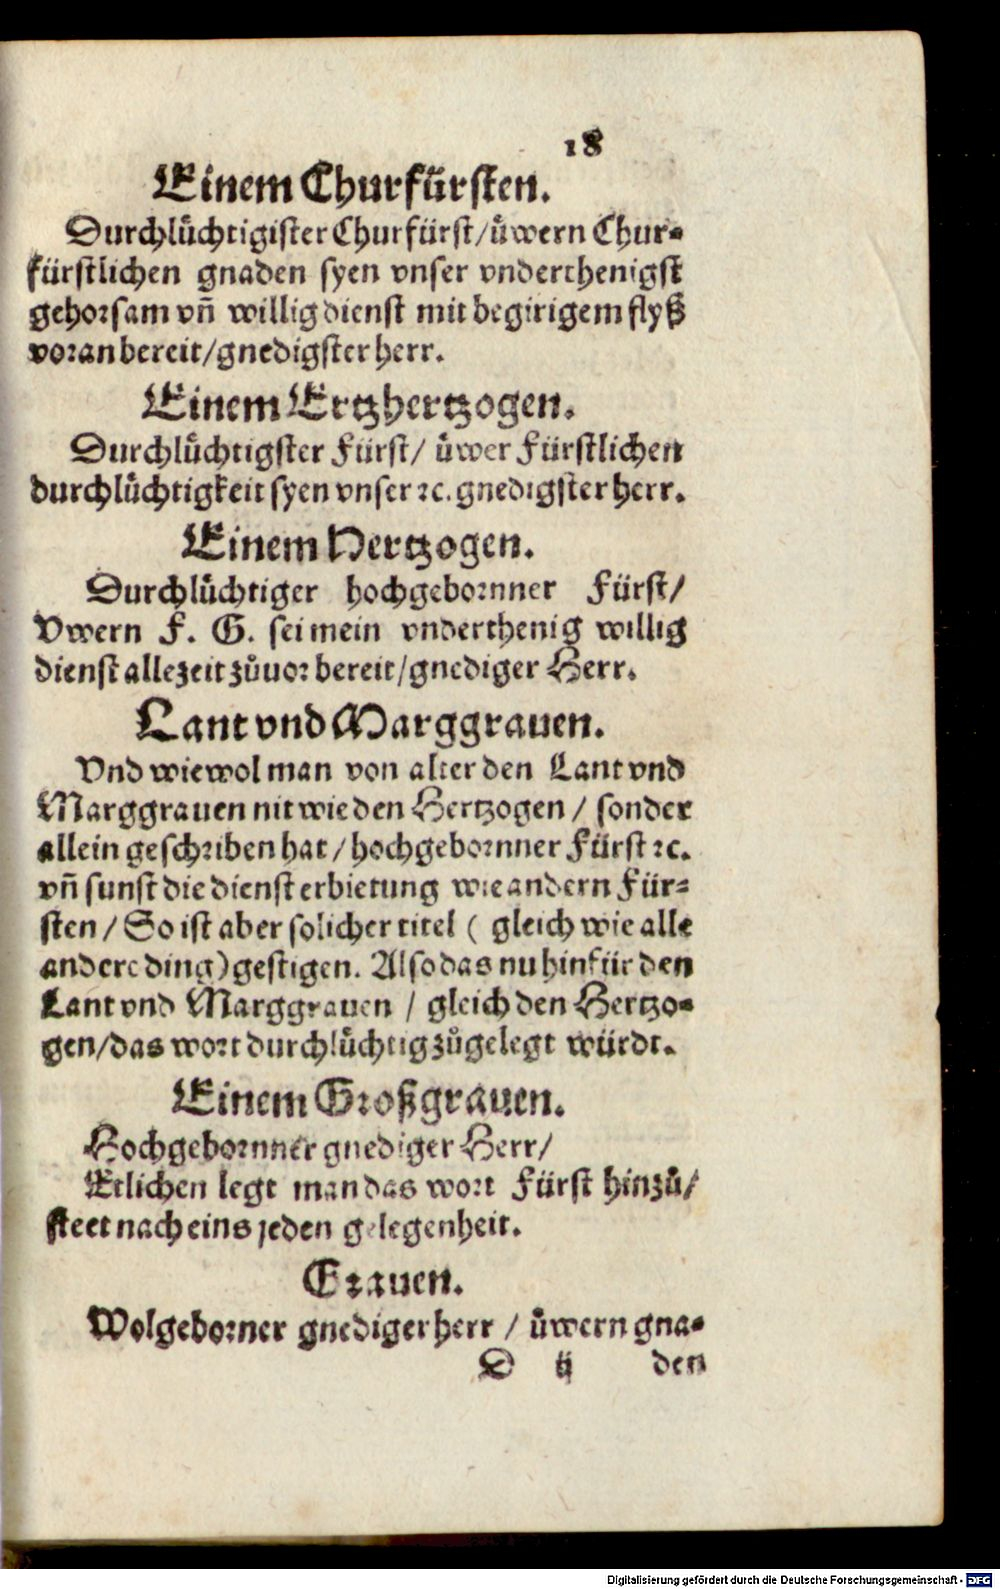 18
Einem Churfürsten.
Durchlüchtigister Churfürst/üwern Chur-
fürstlichen gnaden syen vnser vnderthenigst
gehorsam vñ willig dienst mit begirigem flyß
voran bereit/gnedigster herr.
Einem Ertzhertzogen.
Durchlüchtigster Fürst/ üwer Fürstlichen
durchlüchtigkeit syen vnser ꝛc. gnedigster herr.
Einem Hertzogen.
Durchlüchtiger hochgebornner Fürst/
Vwern F. G. sei mein vnderthenig willig
dienst allezeit zůuor bereit/gnediger Herr.
Lant vnd Marggrauen.
Vnd wiewol man von alter den Lant vnd
Marggrauen nit wie den Hertzogen / sonder
allein geschriben hat / hochgebornner Fürst ꝛc.
vñ sunst die dienst erbietung wie andern Für-
sten / So ist aber solicher titel ( gleich wie alle
andere ding) gestigen. Also das nu hinfür den
Lant vnd Marggrauen / gleich den Hertzo-
gen/das wort durchlüchtig zůgelegt würdt.
Einem Großgrauen.
Hochgebornner gnediger Herr/
Etlichen legt man das wort Fürst hinzů/
steet nach eins jeden gelegenheit.
Grauen.
Wolgeborner gnediger herr / üwern gna-
D ij den
Digitalisierung gefördert durch die Deutsche Forschungsgemeinschaft - DFG